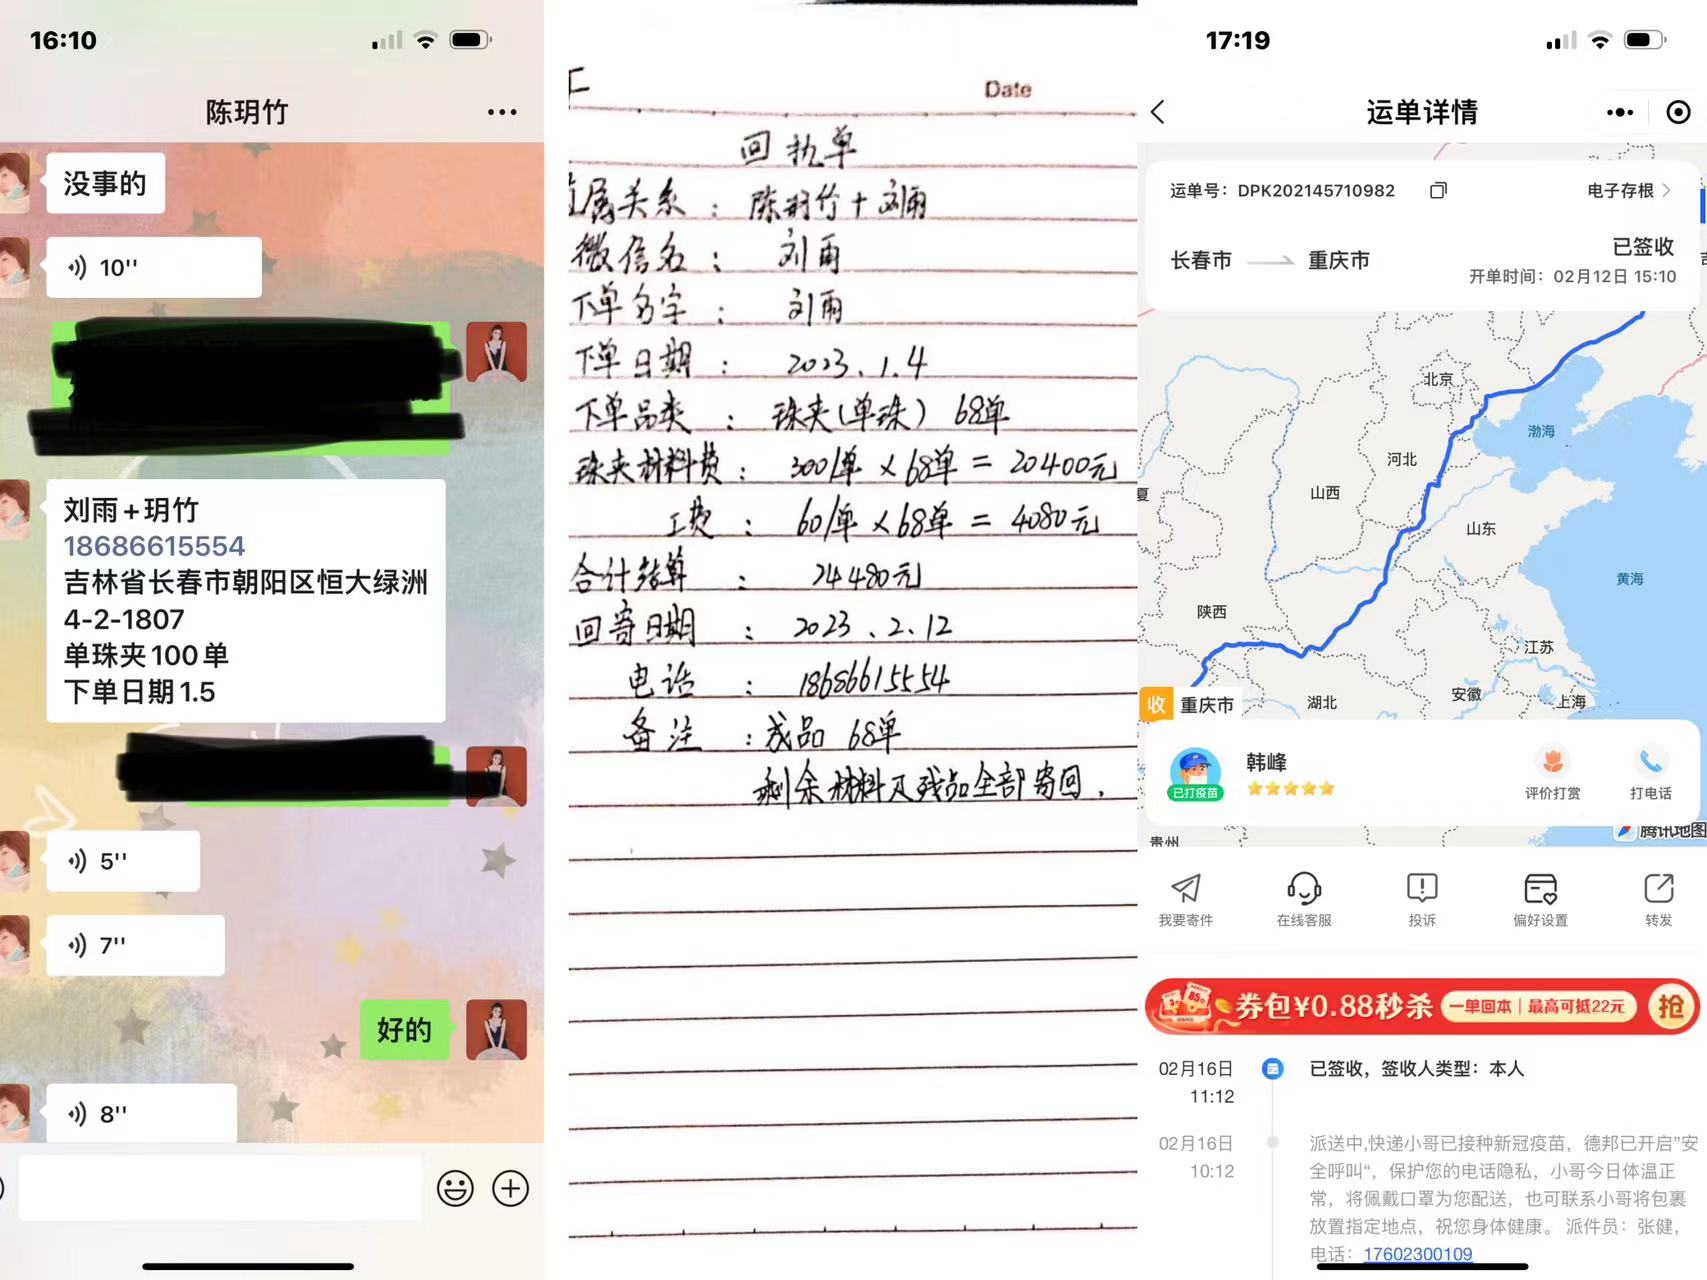 16:10
陈玥竹
没事的
10''
刘雨+玥竹
18686615554
吉林省长春市朝阳区恒大绿洲
4-2-1807
单珠夹100单
下单日期1.5
5''
7''
好的
8''
Date
回执单
属关系：陈玥竹+刘雨
微信名：刘雨
下单名字：刘雨
下单日期：2023.1.4
下单品类：珠夹(单珠) 68单
珠夹材料费：300/单×68单=20400元
工费：60/单×68单=4080元
合计结算：24480元
回寄日期：2023.2.12
电话：18686615554
备注：成品68单
剩余材料及残品全部寄回.
17:19
运单详情
运单号：DPK202145710982
电子存根
长春市
重庆市
已签收
开单时间：02月12日 15:10
北京
渤海
河北
山西
山东
夏
黄海
陕西
江苏
安徽
上海
湖北
收 重庆市
韩峰
已打疫苗
评价打赏
打电话
贵州
腾讯地图
我要寄件
在线客服
投诉
偏好设置
转发
券包¥0.88秒杀
一单回本|最高可抵22元
抢
02月16日
11:12
已签收，签收人类型：本人
02月16日
10:12
派送中,快递小哥已接种新冠疫苗，德邦已开启"安
全呼叫“，保护您的电话隐私，小哥今日体温正
常，将佩戴口罩为您配送，也可联系小哥将包裹
放置指定地点，祝您身体健康。派件员：张健，
电话：17602300109